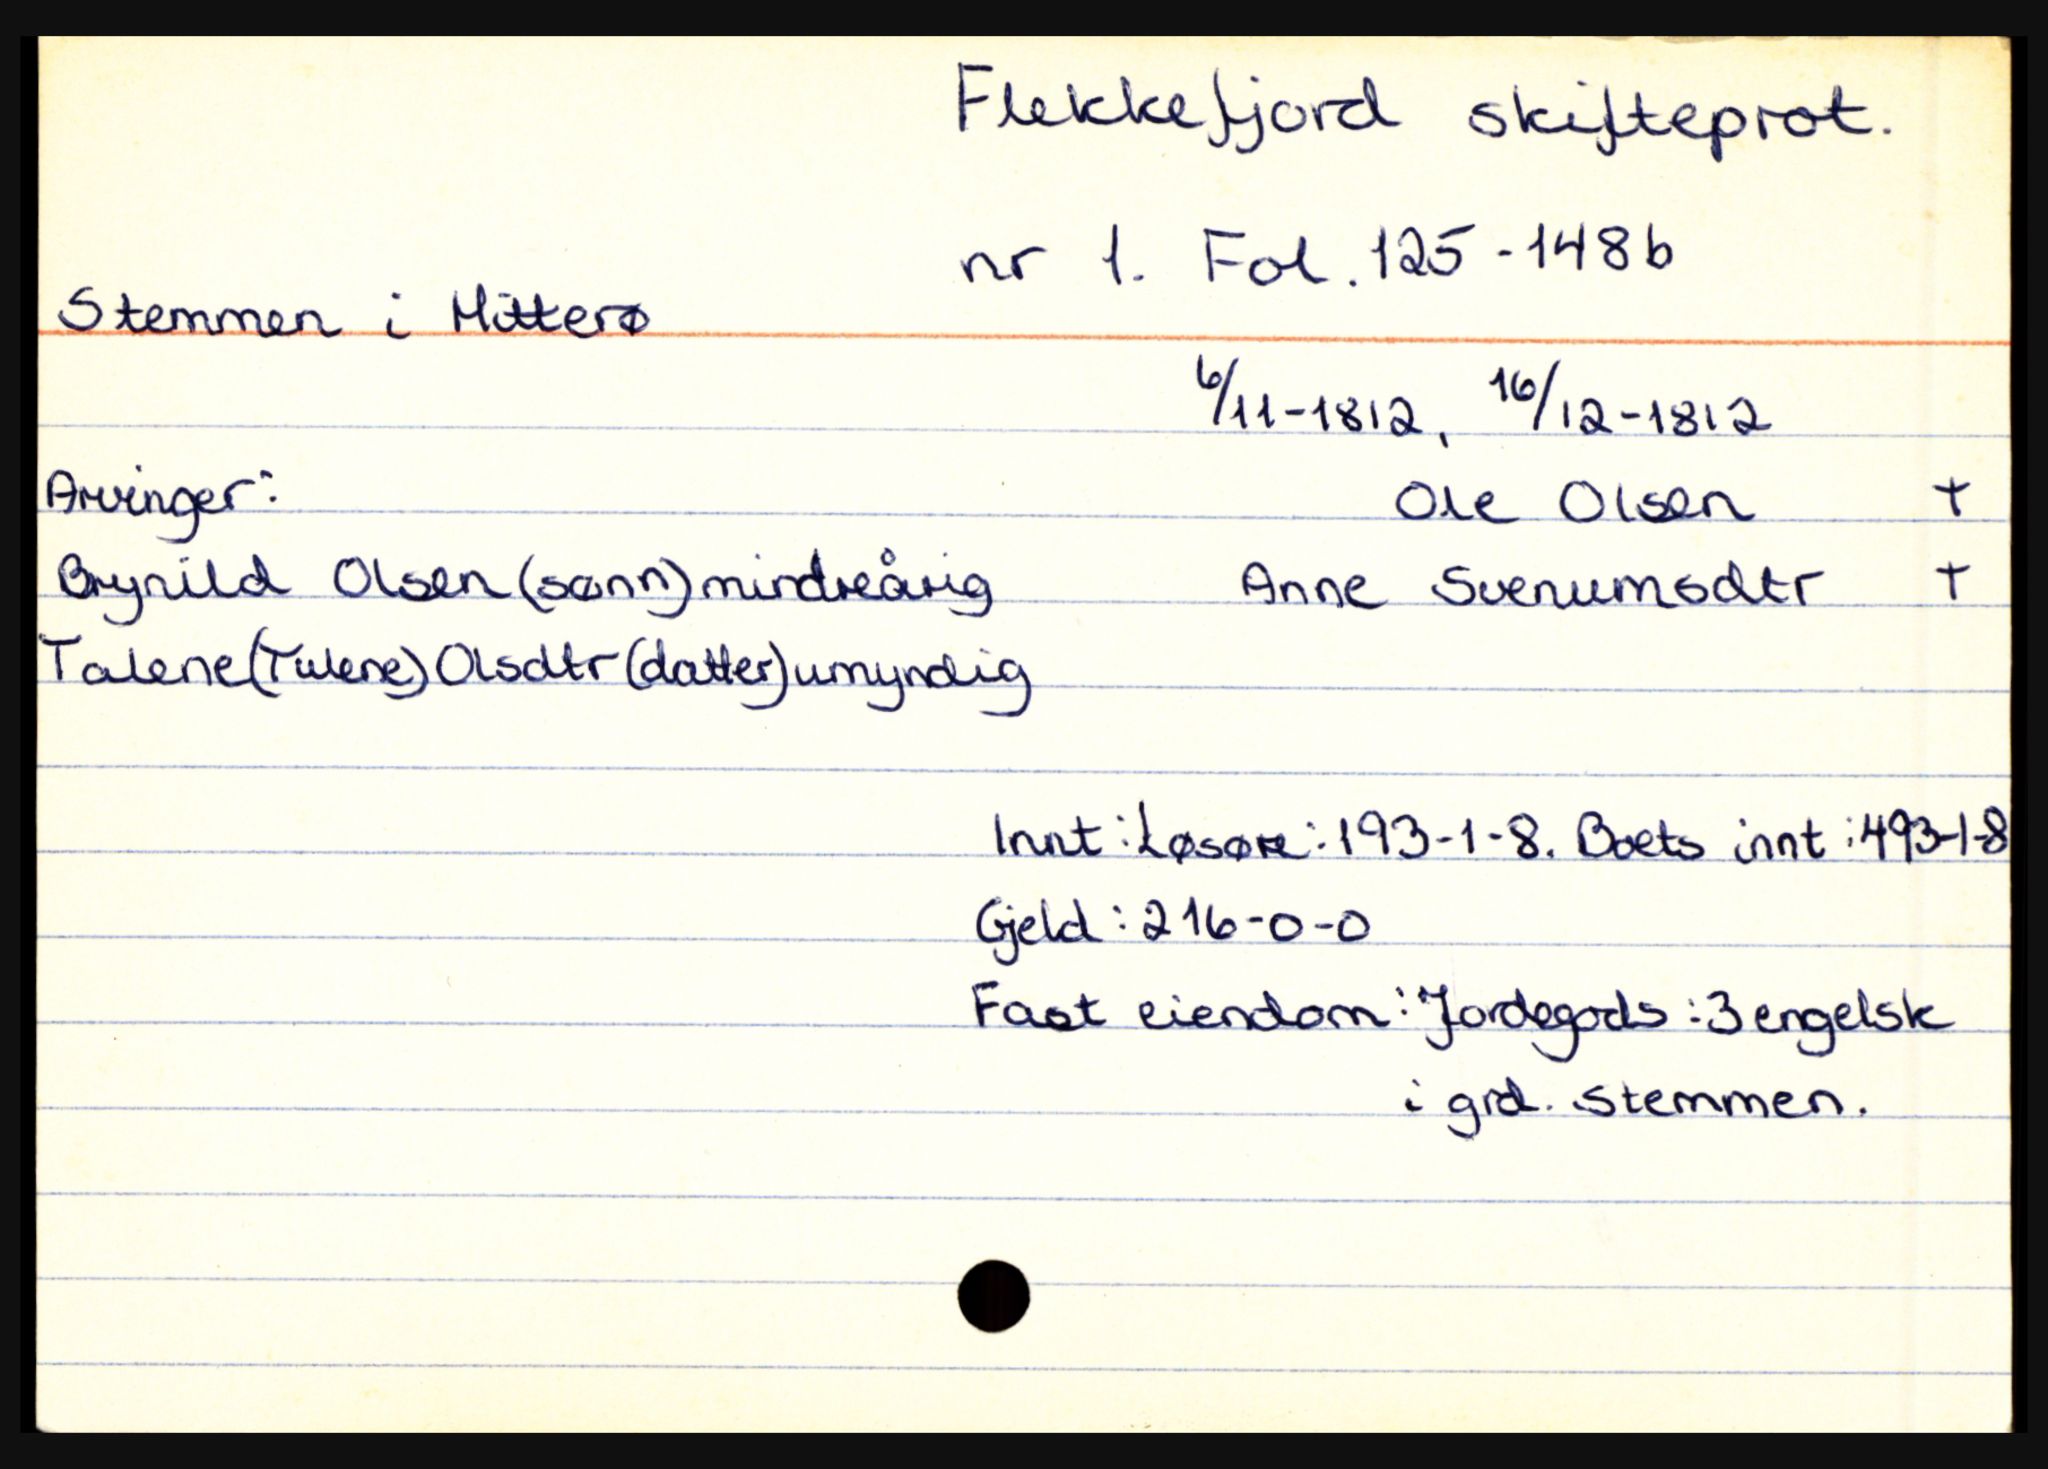 Flekkefjord skifteprot.
nr 1. Fol. 125-148b
Stemmen i Hitterø
6/11-1812, 16/12-1812
Arvinger: Ole Olsen +
Brynild Olsen (sønn) mindreårig Anne Svenumsdtr +
Talene (Tulene) Olsdtr (datter) umyndig
Innt: Løsøre: 193-1-8. Boets innt: 493-1-8
Gjeld: 216-0-0
Fast eiendom: Jordegods: 3 engelsk
i grd. Stemmen.